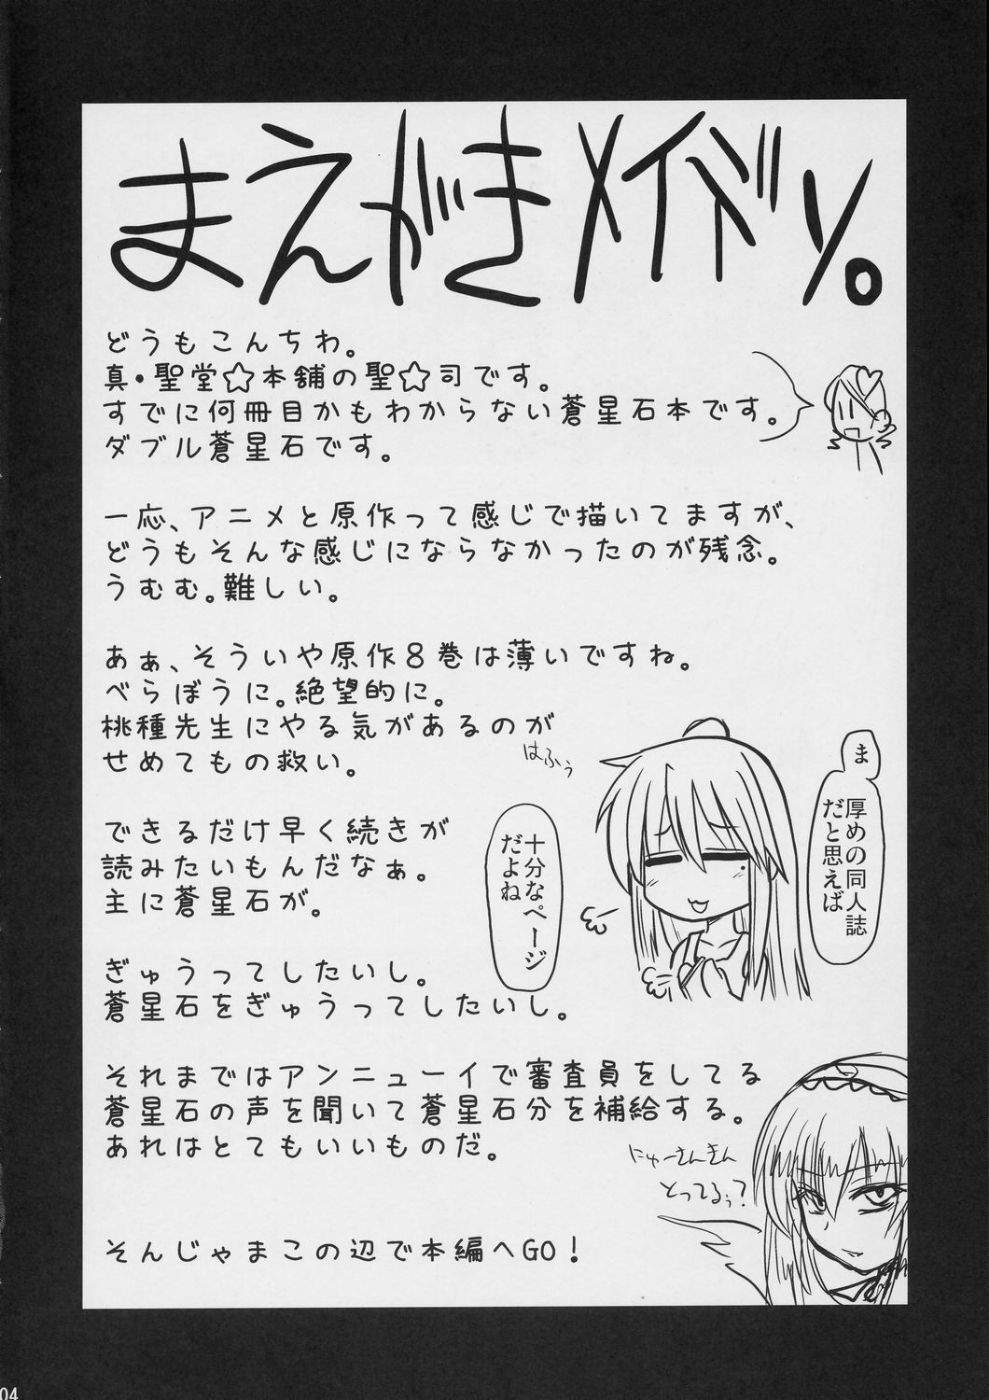 まえがきメイドソ。
どうもこんちわ。
真・聖堂☆本舗の聖☆司です。
すでに何冊目かもわからない蒼星石本です。
ダブル蒼星石です。
一応、アニメと原作って感じで描いてますが、
どうもそんな感じにならなかったのが残念。
うむむ。難しい。
あぁ、そういや原作8巻は薄いですね。
べらぼうに。絶望的に。
桃種先生にやる気があるのが
せめてもの救い。
はふぅ
ま
厚めの同人誌
だと思えば
十分なページ
だよね
できるだけ早く続きが
読みたいもんだなぁ。
主に蒼星石が。
ぎゅうってしたいし。
蒼星石をぎゅうってしたいし。
それまではアンニューイで審査員をしてる
蒼星石の声を聞いて蒼星石分を補給する。
あれはとてもいいものだ。
にゅーさんきん
とってるぅ?
そんじゃまこの辺で本編へGO!
04